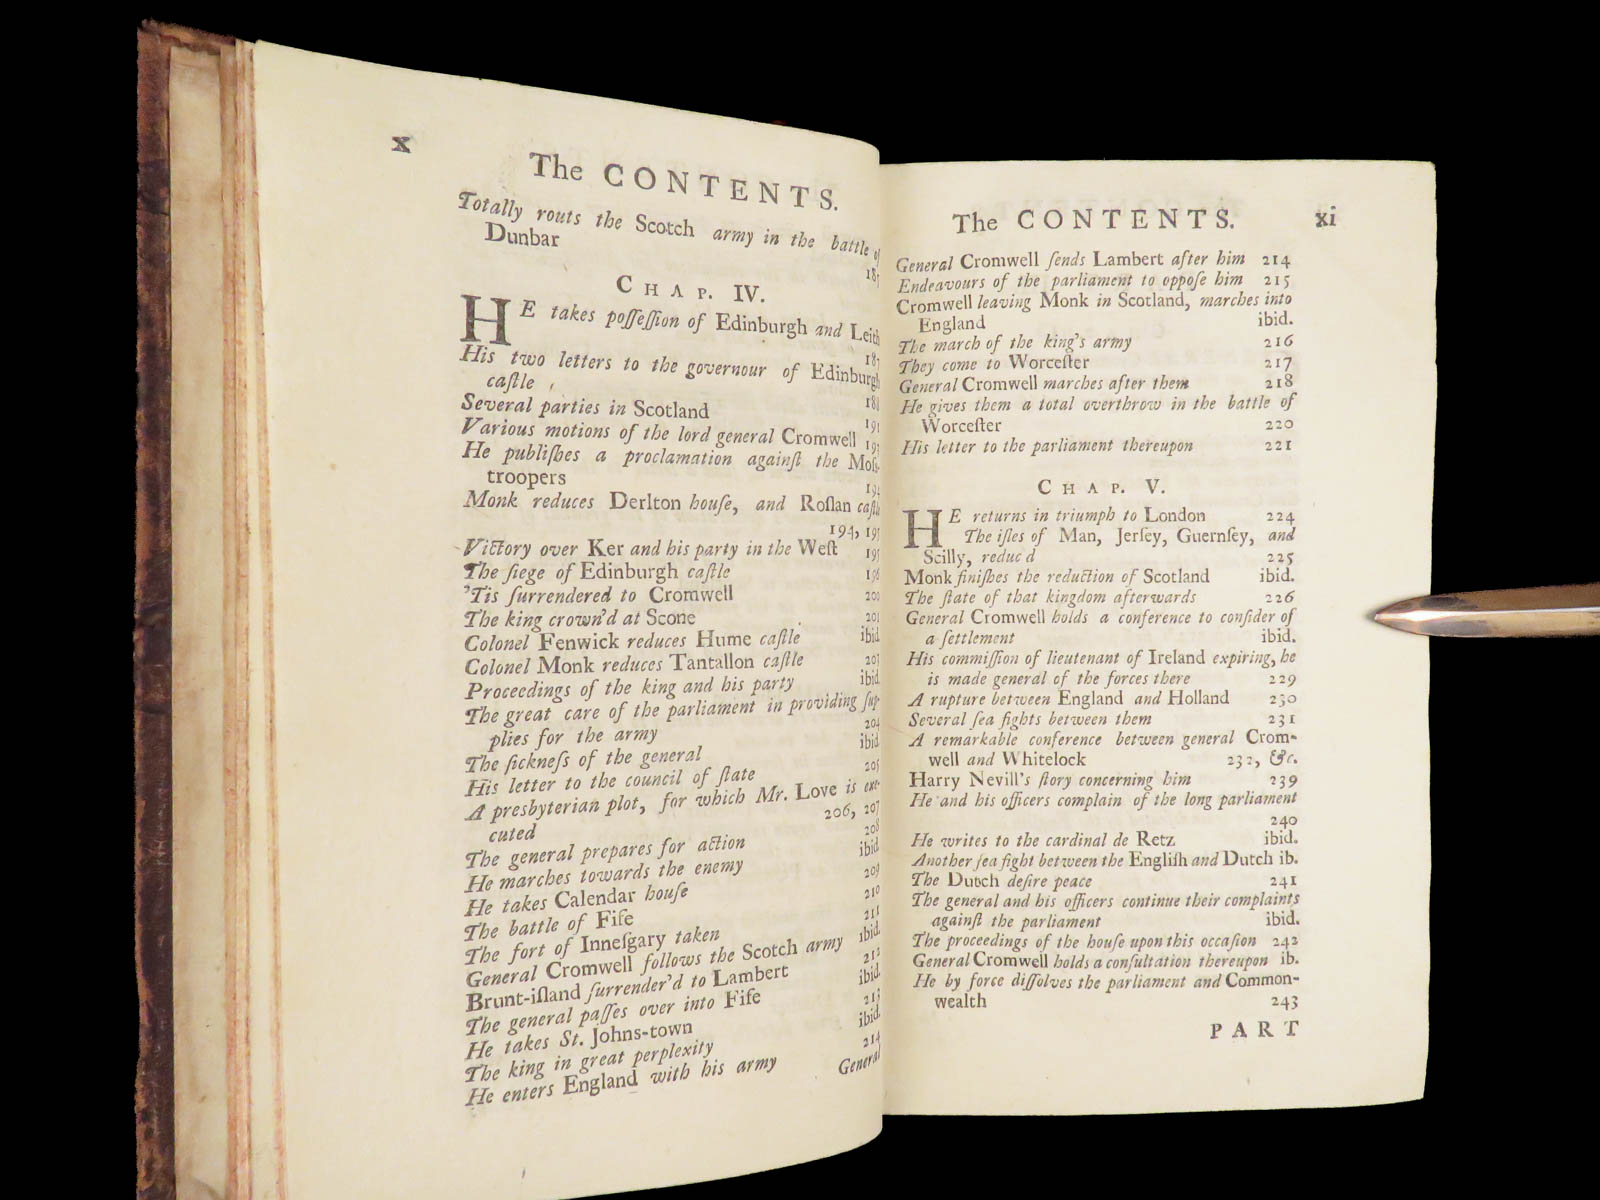 x
The CONTENTS.
Totally routs the Scotch army in the battle of
Dunbar
CHAP. IV.
HE takes poſſeſſion of Edinburgh and Leith
His two letters to the governour of Edinburgh
caſtle
Several parties in Scotland
Various motions of the lord general Cromwell 193
He publiſhes a proclamation againſt the Moſs-
troopers
Monk reduces Derlton houſe, and Roſlan caſtle
194, 195
Victory over Ker and his party in the Weſt 195
The ſiege of Edinburgh caſtle 196
'Tis ſurrendered to Cromwell 200
The king crown'd at Scone 201
Colonel Fenwick reduces Hume caſtle ibid.
Colonel Monk reduces Tantallon caſtle 203
Proceedings of the king and his party ibid.
The great care of the parliament in providing ſup-
plies for the army 204
The ſickneſs of the general ibid.
His letter to the council of ſtate 205
A presbyterian plot, for which Mr. Love is exe-
cuted 206, 207
The general prepares for action 208
He marches towards the enemy ibid.
He takes Calendar houſe 209
The battle of Fife 210
The fort of Inneſgary taken 211
General Cromwell follows the Scotch army ibid.
Brunt-iſland ſurrender'd to Lambert 212
The general paſſes over into Fife ibid.
He takes St. Johns-town 213
The king in great perplexity ibid.
He enters England with his army 214
General
The CONTENTS. xi
General Cromwell ſends Lambert after him 214
Endeavours of the parliament to oppoſe him 215
Cromwell leaving Monk in Scotland, marches into
England ibid.
The march of the king's army 216
They come to Worceſter 217
General Cromwell marches after them 218
He gives them a total overthrow in the battle of
Worceſter 220
His letter to the parliament thereupon 221
CHAP. V.
HE returns in triumph to London 224
The iſles of Man, Jerſey, Guernſey, and
Scilly, reduc'd 225
Monk finiſhes the reduction of Scotland ibid.
The ſtate of that kingdom afterwards 226
General Cromwell holds a conference to conſider of
a ſettlement ibid.
His commiſſion of lieutenant of Ireland expiring, he
is made general of the forces there 229
A rupture between England and Holland 230
Several ſea fights between them 231
A remarkable conference between general Crom-
well and Whitelock 232, &c.
Harry Nevill's ſtory concerning him 239
He and his officers complain of the long parliament
240
He writes to the cardinal de Retz ibid.
Another ſea fight between the Engliſh and Dutch ib.
The Dutch deſire peace 241
The general and his officers continue their complaints
againſt the parliament ibid.
The proceedings of the houſe upon this occaſion 242
General Cromwell holds a conſultation thereupon ib.
He by force diſſolves the parliament and Common-
wealth 243
PART